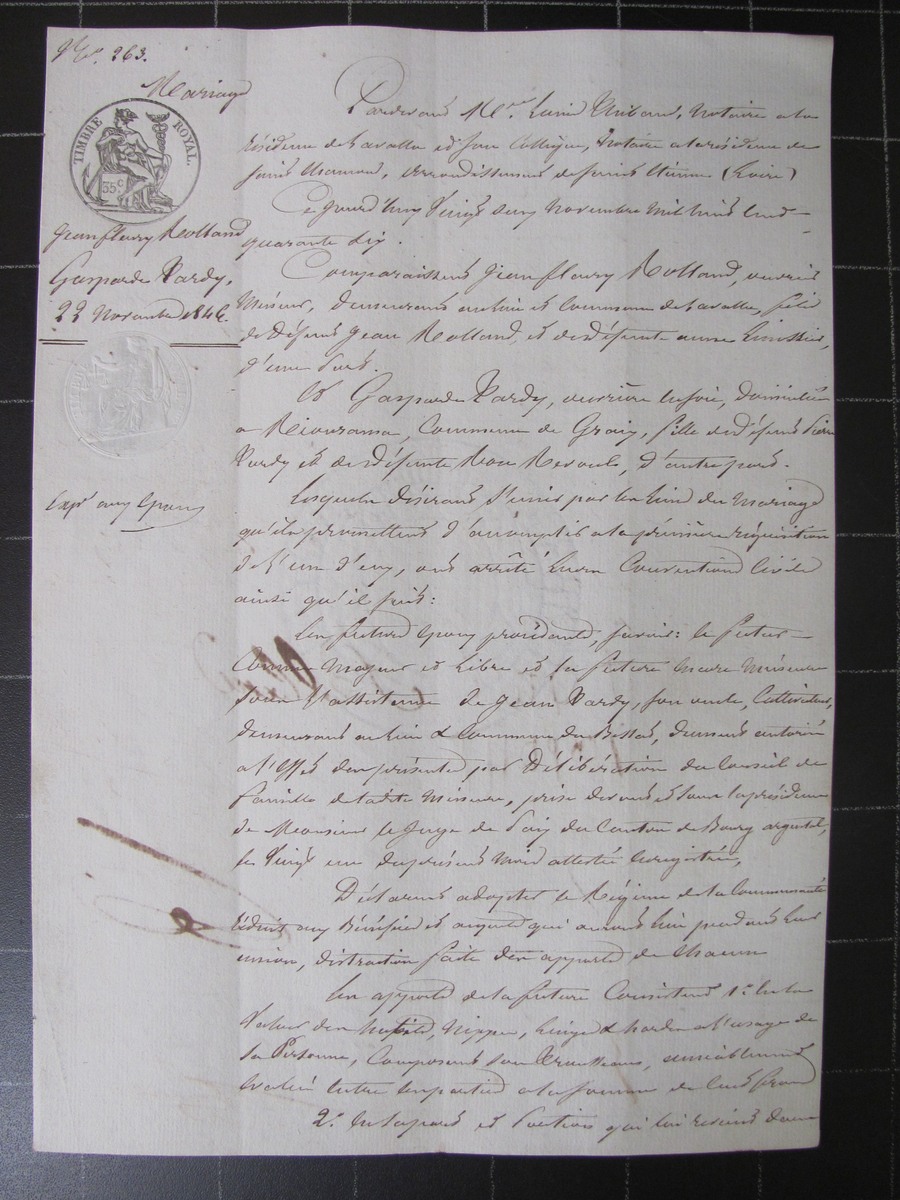 N.º 263.
Mariage
TIMBRE ROYAL.
35 c
Jean fleury Rolland
Gasparde Vardy,
22 Novembre 1846.
Exp.on aux Epoux
Pardevant M.tre Louis Thibaud, Notaire à la
résidence de Lavalla et son Collègue, Notaire à la résidence de
Saint Chamond, arrondissement de Saint Etienne (Loire)
Ce Jourd'huy Vingt deux Novembre Mil huit Cent
quarante Six.
Comparaissent Jean fleury Rolland, ouvrier
Mineur, demeurant au lieu et Commune de Lavalla, fils
de défunt Jean Rolland, et de défunte anne
d'une Part.
Et Gasparde Vardy, ouvrière en soie, domiciliée
à Commune de Graix, fille de défunt Pierre
Vardy et de défunte d'autre part.
Lesquels désirant S'unir par les liens du Mariage
qu'ils promettent d'accomplir à la première réquisition
de L'un d'eux, ont arrêté leurs Conventions Civiles
ainsi qu'il suit:
Les futurs époux procédants, savoir: le futur
Comme Majeur et Libre et la future encore Mineure
sous l'assistance de Jean Vardy, son oncle, Cultivateur,
demeurant au lieu & Commune du Bessat, dument autorisé
à l'Effet des présentes par Délibération du Conseil de
famille de ladite Mineure, prise devant et sous la présidence
de Monsieur le Juge de Paix du Canton de Bourg argental,
le Vingt un du présent Mois Enregistrée,
Déclarent adopter le Régime de la Communauté
réduit aux Bénéfices et acquets qui auront lieu pendant leur
union, distraction faite des apports de Chacun
Les apports de la future Consistent 1.º en la
Valeur des habits, Nippes, Linges & hardes à l'usage de
sa Personne, Composant son Trousseau, amiablement
évalué entre les parties à la somme de Cent francs
2.º en la part et Portion qui lui revient dans